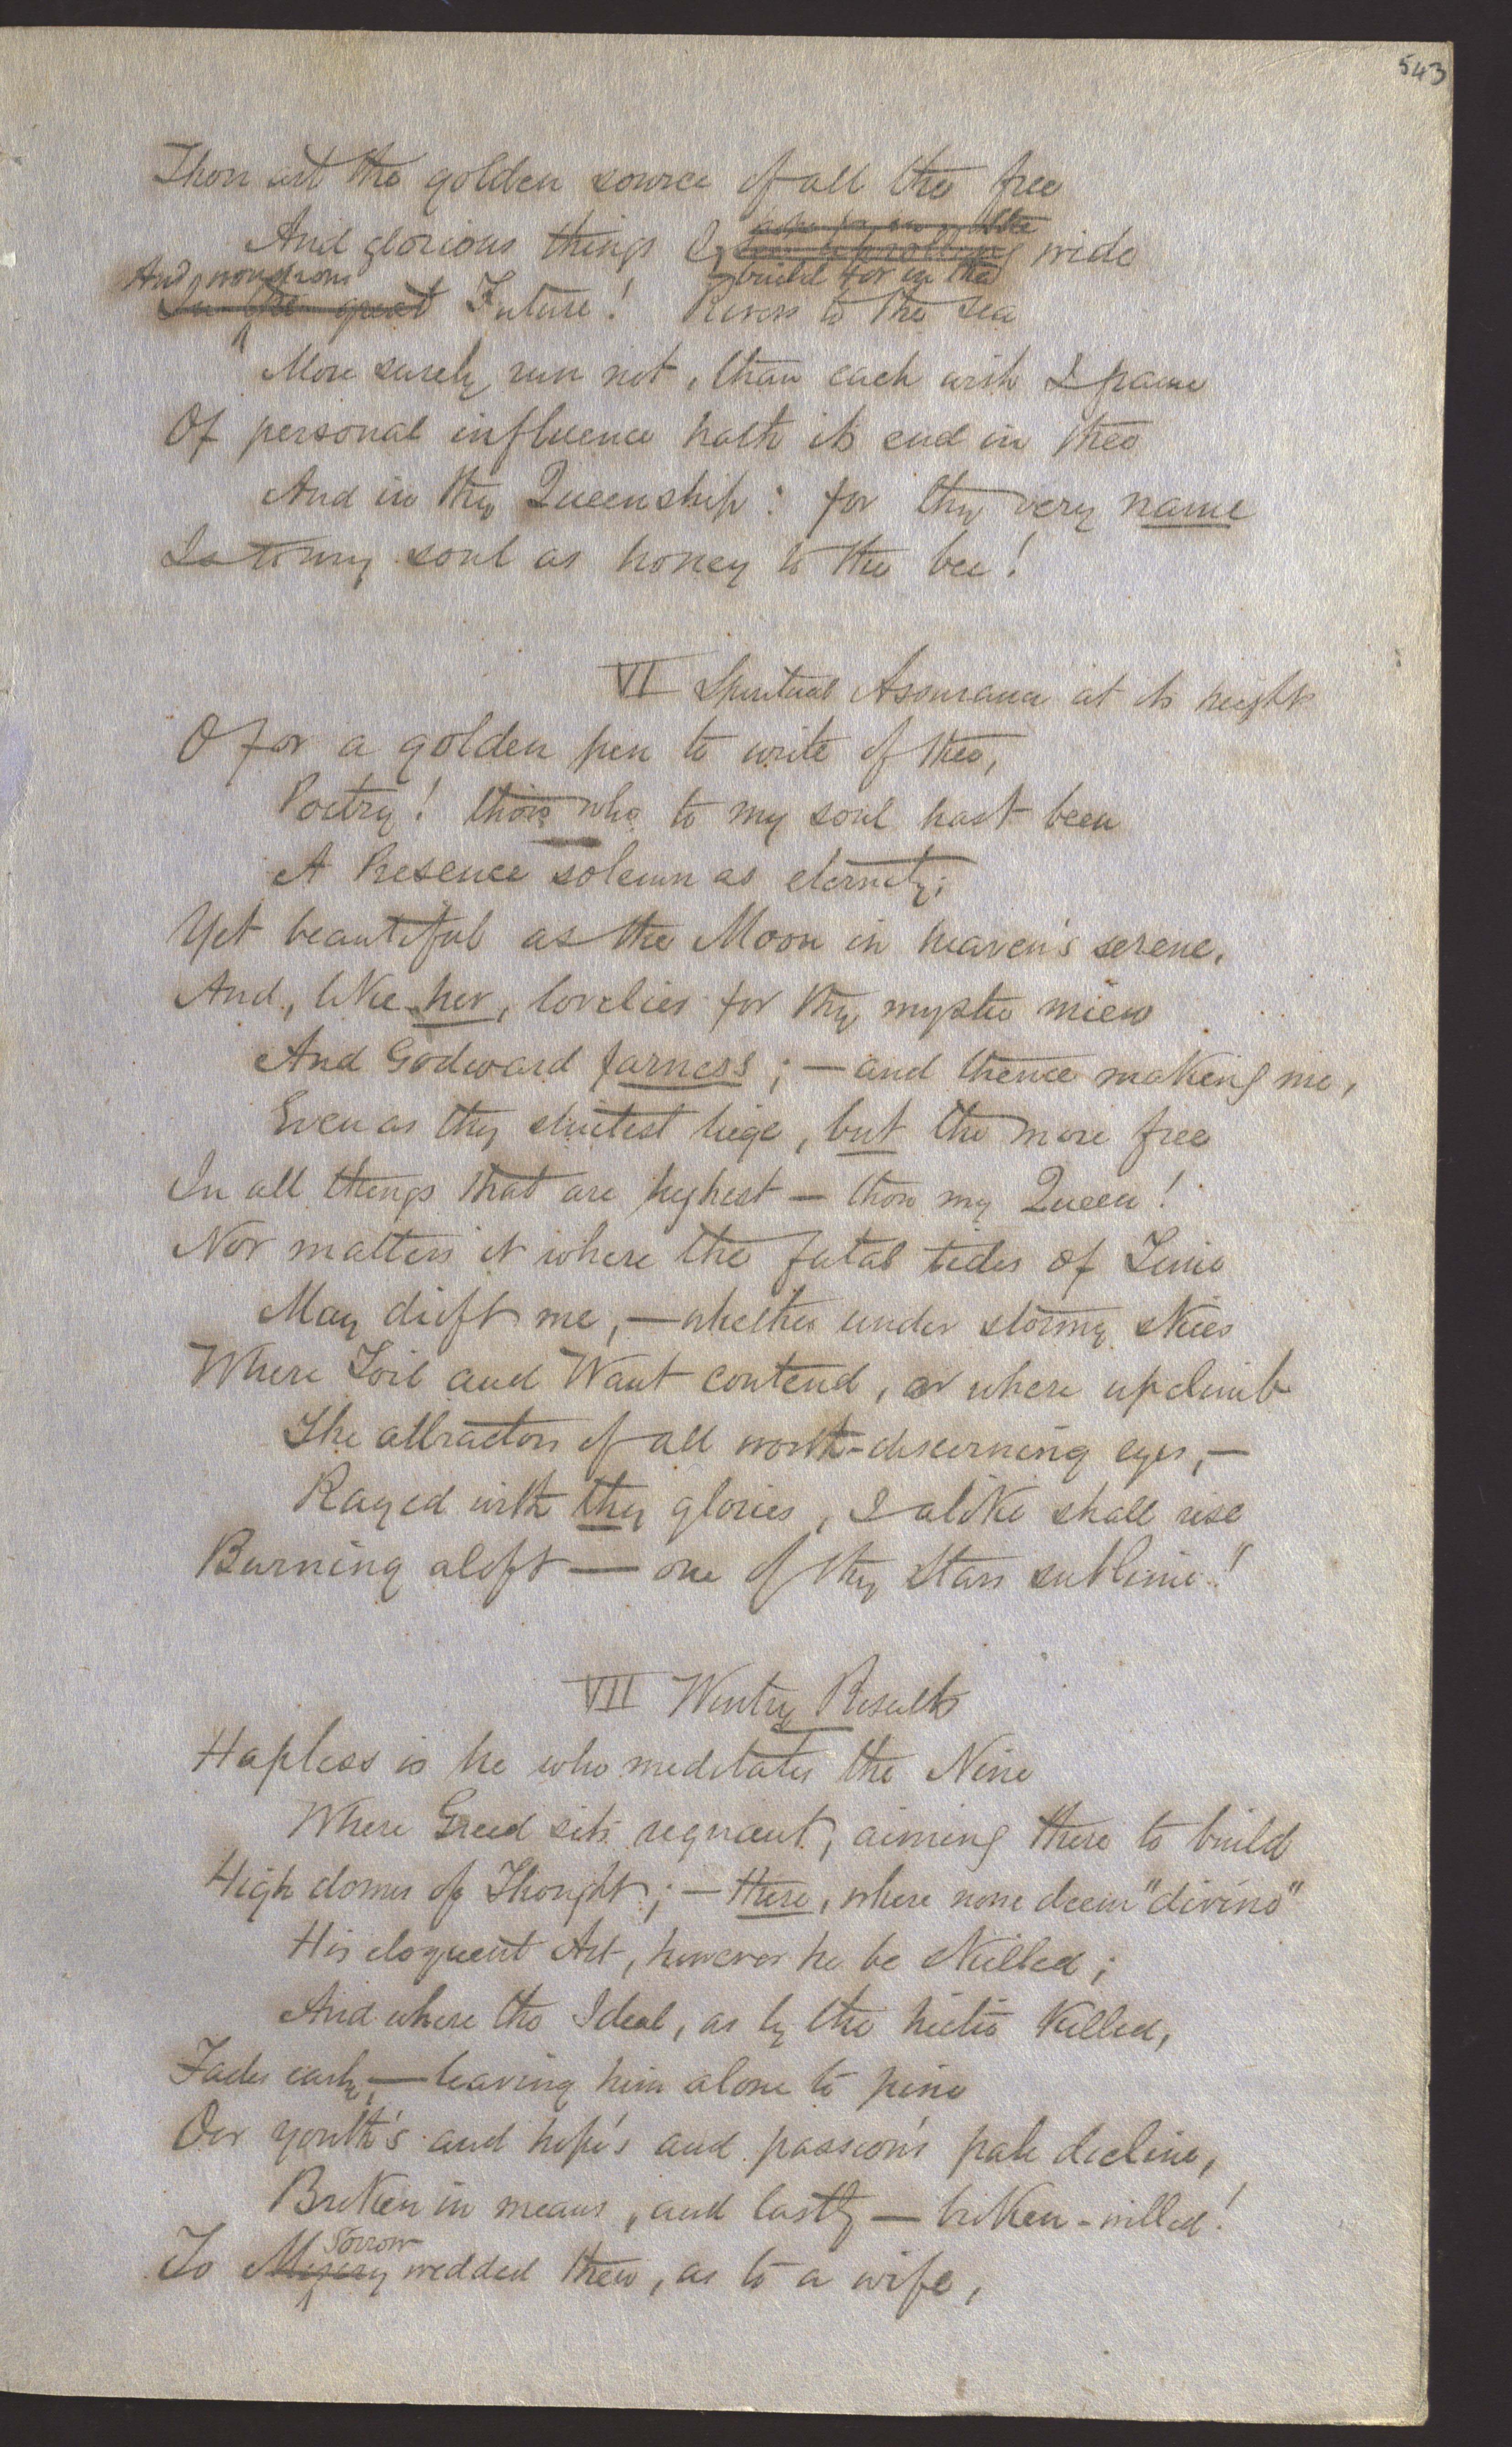 543
Thou art the golden source of all the free
And glorious things I build for in the wide
And wondrous Future! Rivers to the sea
More surely run not, than each wish I frame
Of personal influence hath its end in thee
And in thy Queenship: for thy very name
Is to my soul as honey to the bee!
VI Spiritual Assurance at its height
O for a golden pen to write of thee,
Poetry! thou who to my soul hast been
A Presence solemn as eternity;
Yet beautiful as the Moon in heaven's serene,
And, like her, lovelier for thy mystic mien
And Godward farness; — and thence making me,
Even as thy strictest liege, but the more free
In all things that are highest — thou my Queen!
Nor matters it where the fatal tides of Time
May drift me, — whether under stormy skies
Where Toil and Want contend, or where upclimb
The attractors of all worth-discerning eyes, —
Rayed with thy glories, I alike shall rise
Burning aloft — one of thy Stars sublime!"
VII Wintry Results
Hapless is he who meditates the Nine
Where Greed sits regnant, aiming there to build
High domes of Thought; — there, where none deem "divine"
His eloquent Art, however he be skilled;
And where the Ideal, as by the hectic killed,
Fades early, — leaving him alone to pine
Oer youth's and hope's and passion's pale decline,
Broken in means, and lastly — broken-willed!
To Misery Sorrow wedded then, as to a wife,